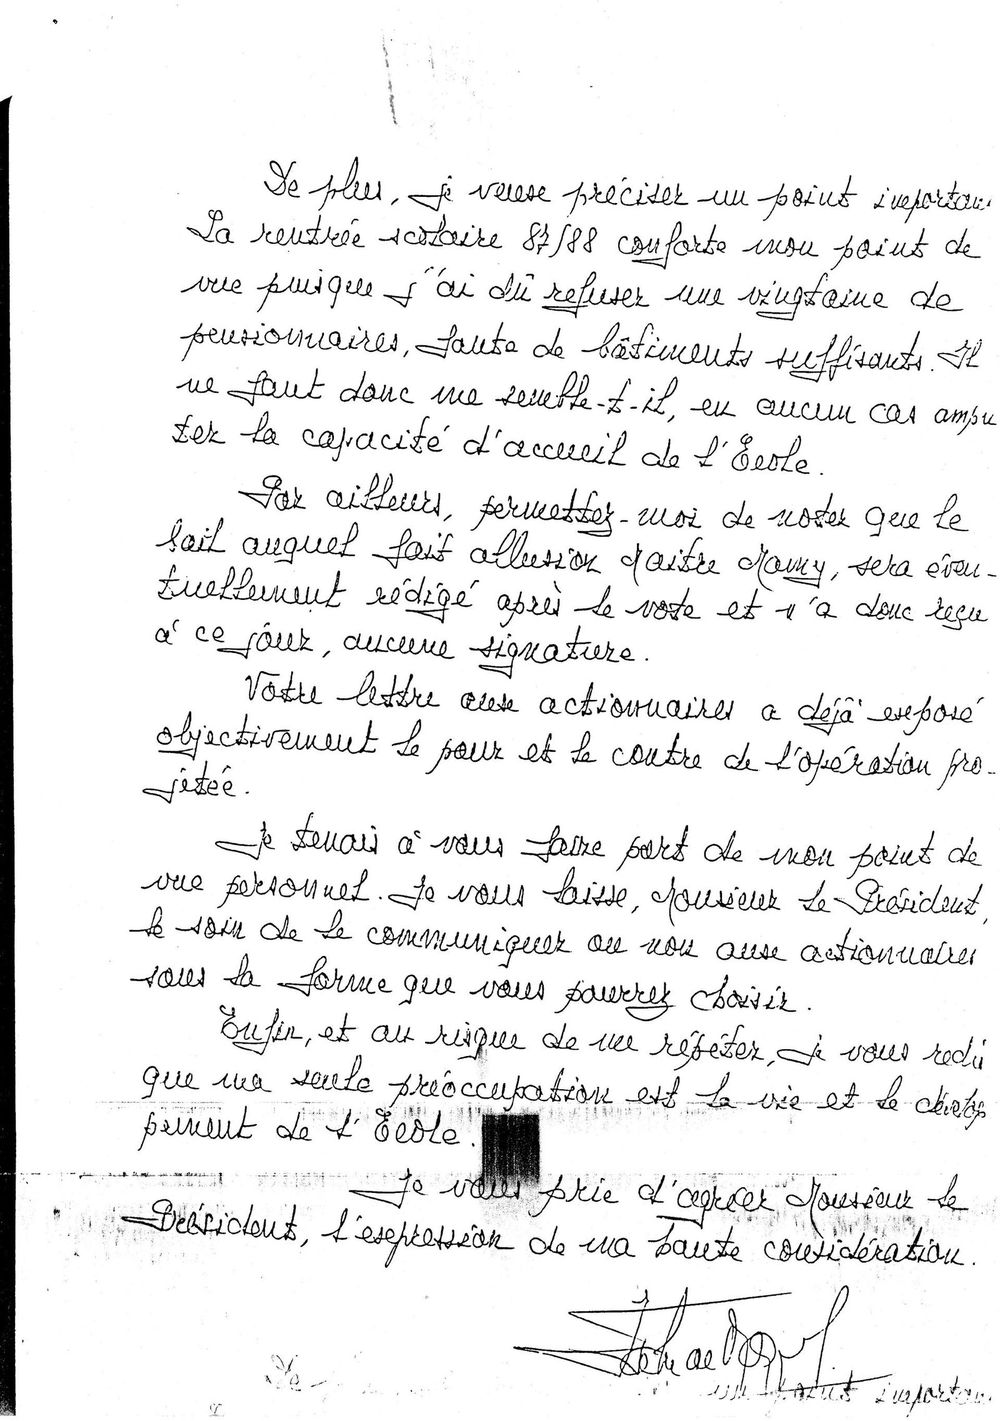 De plus, je veux préciser un point importan
La rentrée scolaire 87/88 conforte mon point de
vue puisque j'ai dû refuser une vingtaine de
pensionnaires, faute de bâtiments suffisants. Il
ne faut donc me semble-t-il, en aucun cas ampu
ter la capacité d'accueil de l'École.
Par ailleurs, permettez-moi de noter que le
bail auquel fait allusion Maître Mamy, sera éven-
tuellement rédigé après le vote et n'a donc reçu
à ce jour, aucune signature.
Votre lettre aux actionnaires a déjà exposé
objectivement le pour et le contre de l'opération pro-
jetée.
Je tenais à vous faire part de mon point de
vue personnel. Je vous laisse, Monsieur le Président,
le soin de le communiquer ou non aux actionnaires
sous la forme que vous pourrez choisir.
Enfin, et au risque de me répéter, je vous redis
que ma seule préoccupation est la vie et le dévelop
pement de l'École.
Je vous prie d'agréer Monsieur le
Président, l'expression de ma haute considération.
De
un point importan